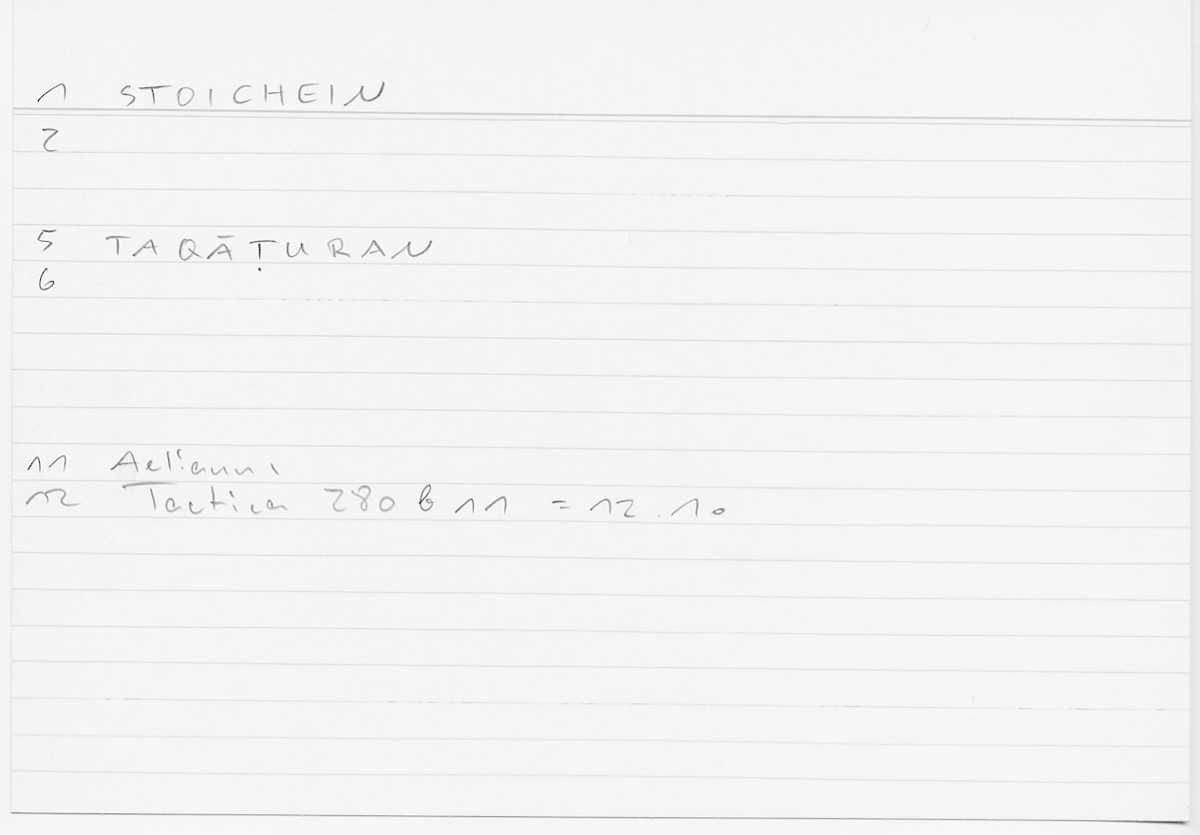 1 STOICHEIN
2
5 TAQĀṬURAN
6
11 Aelianus
12 Tactica 280 b 11 = 12.10